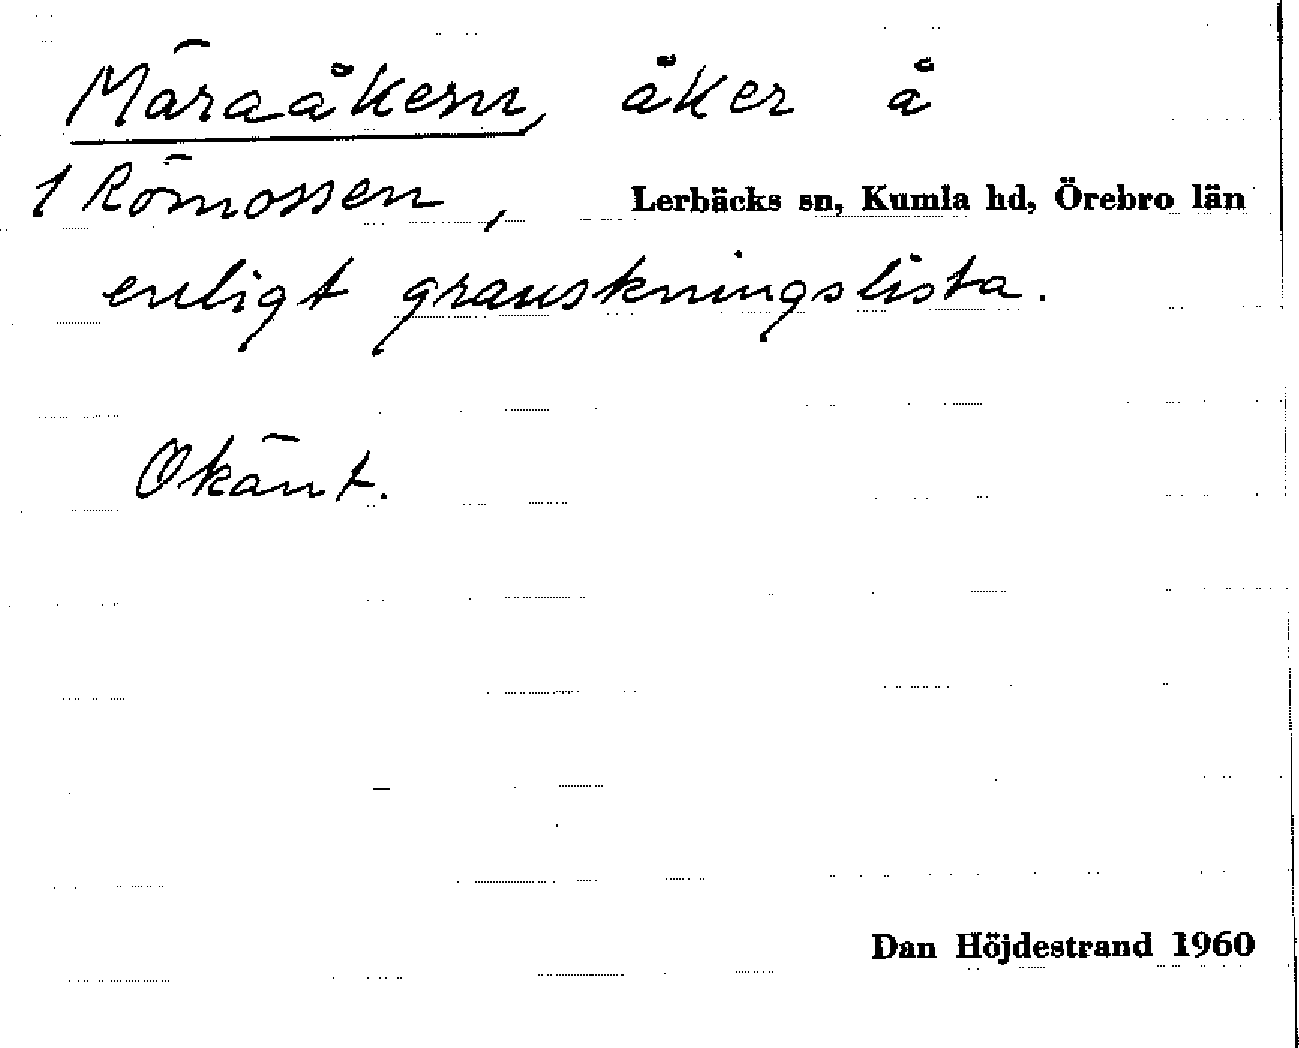 Märaåkern, åker å
1 Römossen, Lerbäcks sn, Kumla hd, Örebro län
enligt granskningslista.
Okänt.
Dan Höjdestrand 1960